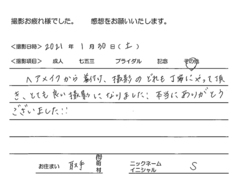 撮影お疲れ様でした。 感想をお願いいたします。
<撮影日時> 2021年 1月 30日(土)
<撮影項目> 成人 七五三 ブライダル 記念 その他
ヘアメイクから着付け、撮影のどれも丁寧にやって頂
き、とても良い撮影になりました!本当にありがとう
ございました!!
お住まい 市 ニックネーム イニシャル S